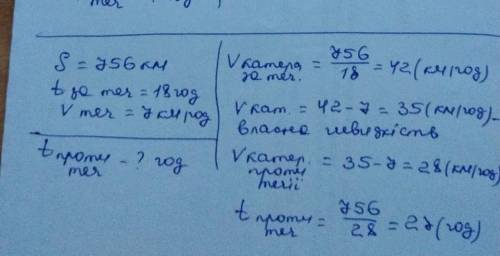 теч
S = 756 км
t за теч = 18 год
V теч = 7 км/год
t проти теч - ? год
V катера за теч. = 756/18 = 42 (км/год)
V кат. = 42 - 7 = 35 (км/год) -
власна швидкість
V катер. проти течії = 35 - 7 = 28 (км/год)
t проти теч = 756/28 = 27 (год)